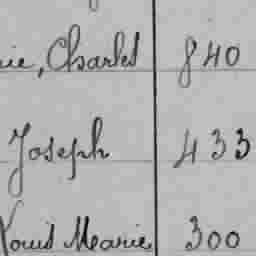 ie, Charles 840
Joseph 433
Louis Marie 300